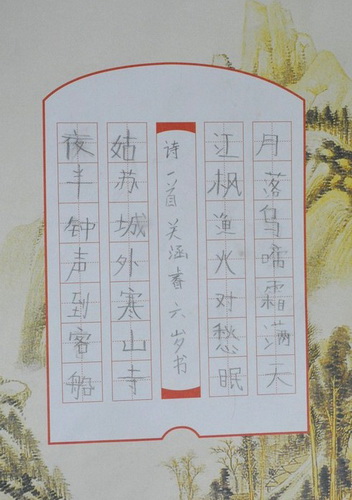 月落乌啼霜满天
江枫渔火对愁眠
诗一首 关涵睿 六岁书
姑苏城外寒山寺
夜半钟声到客船